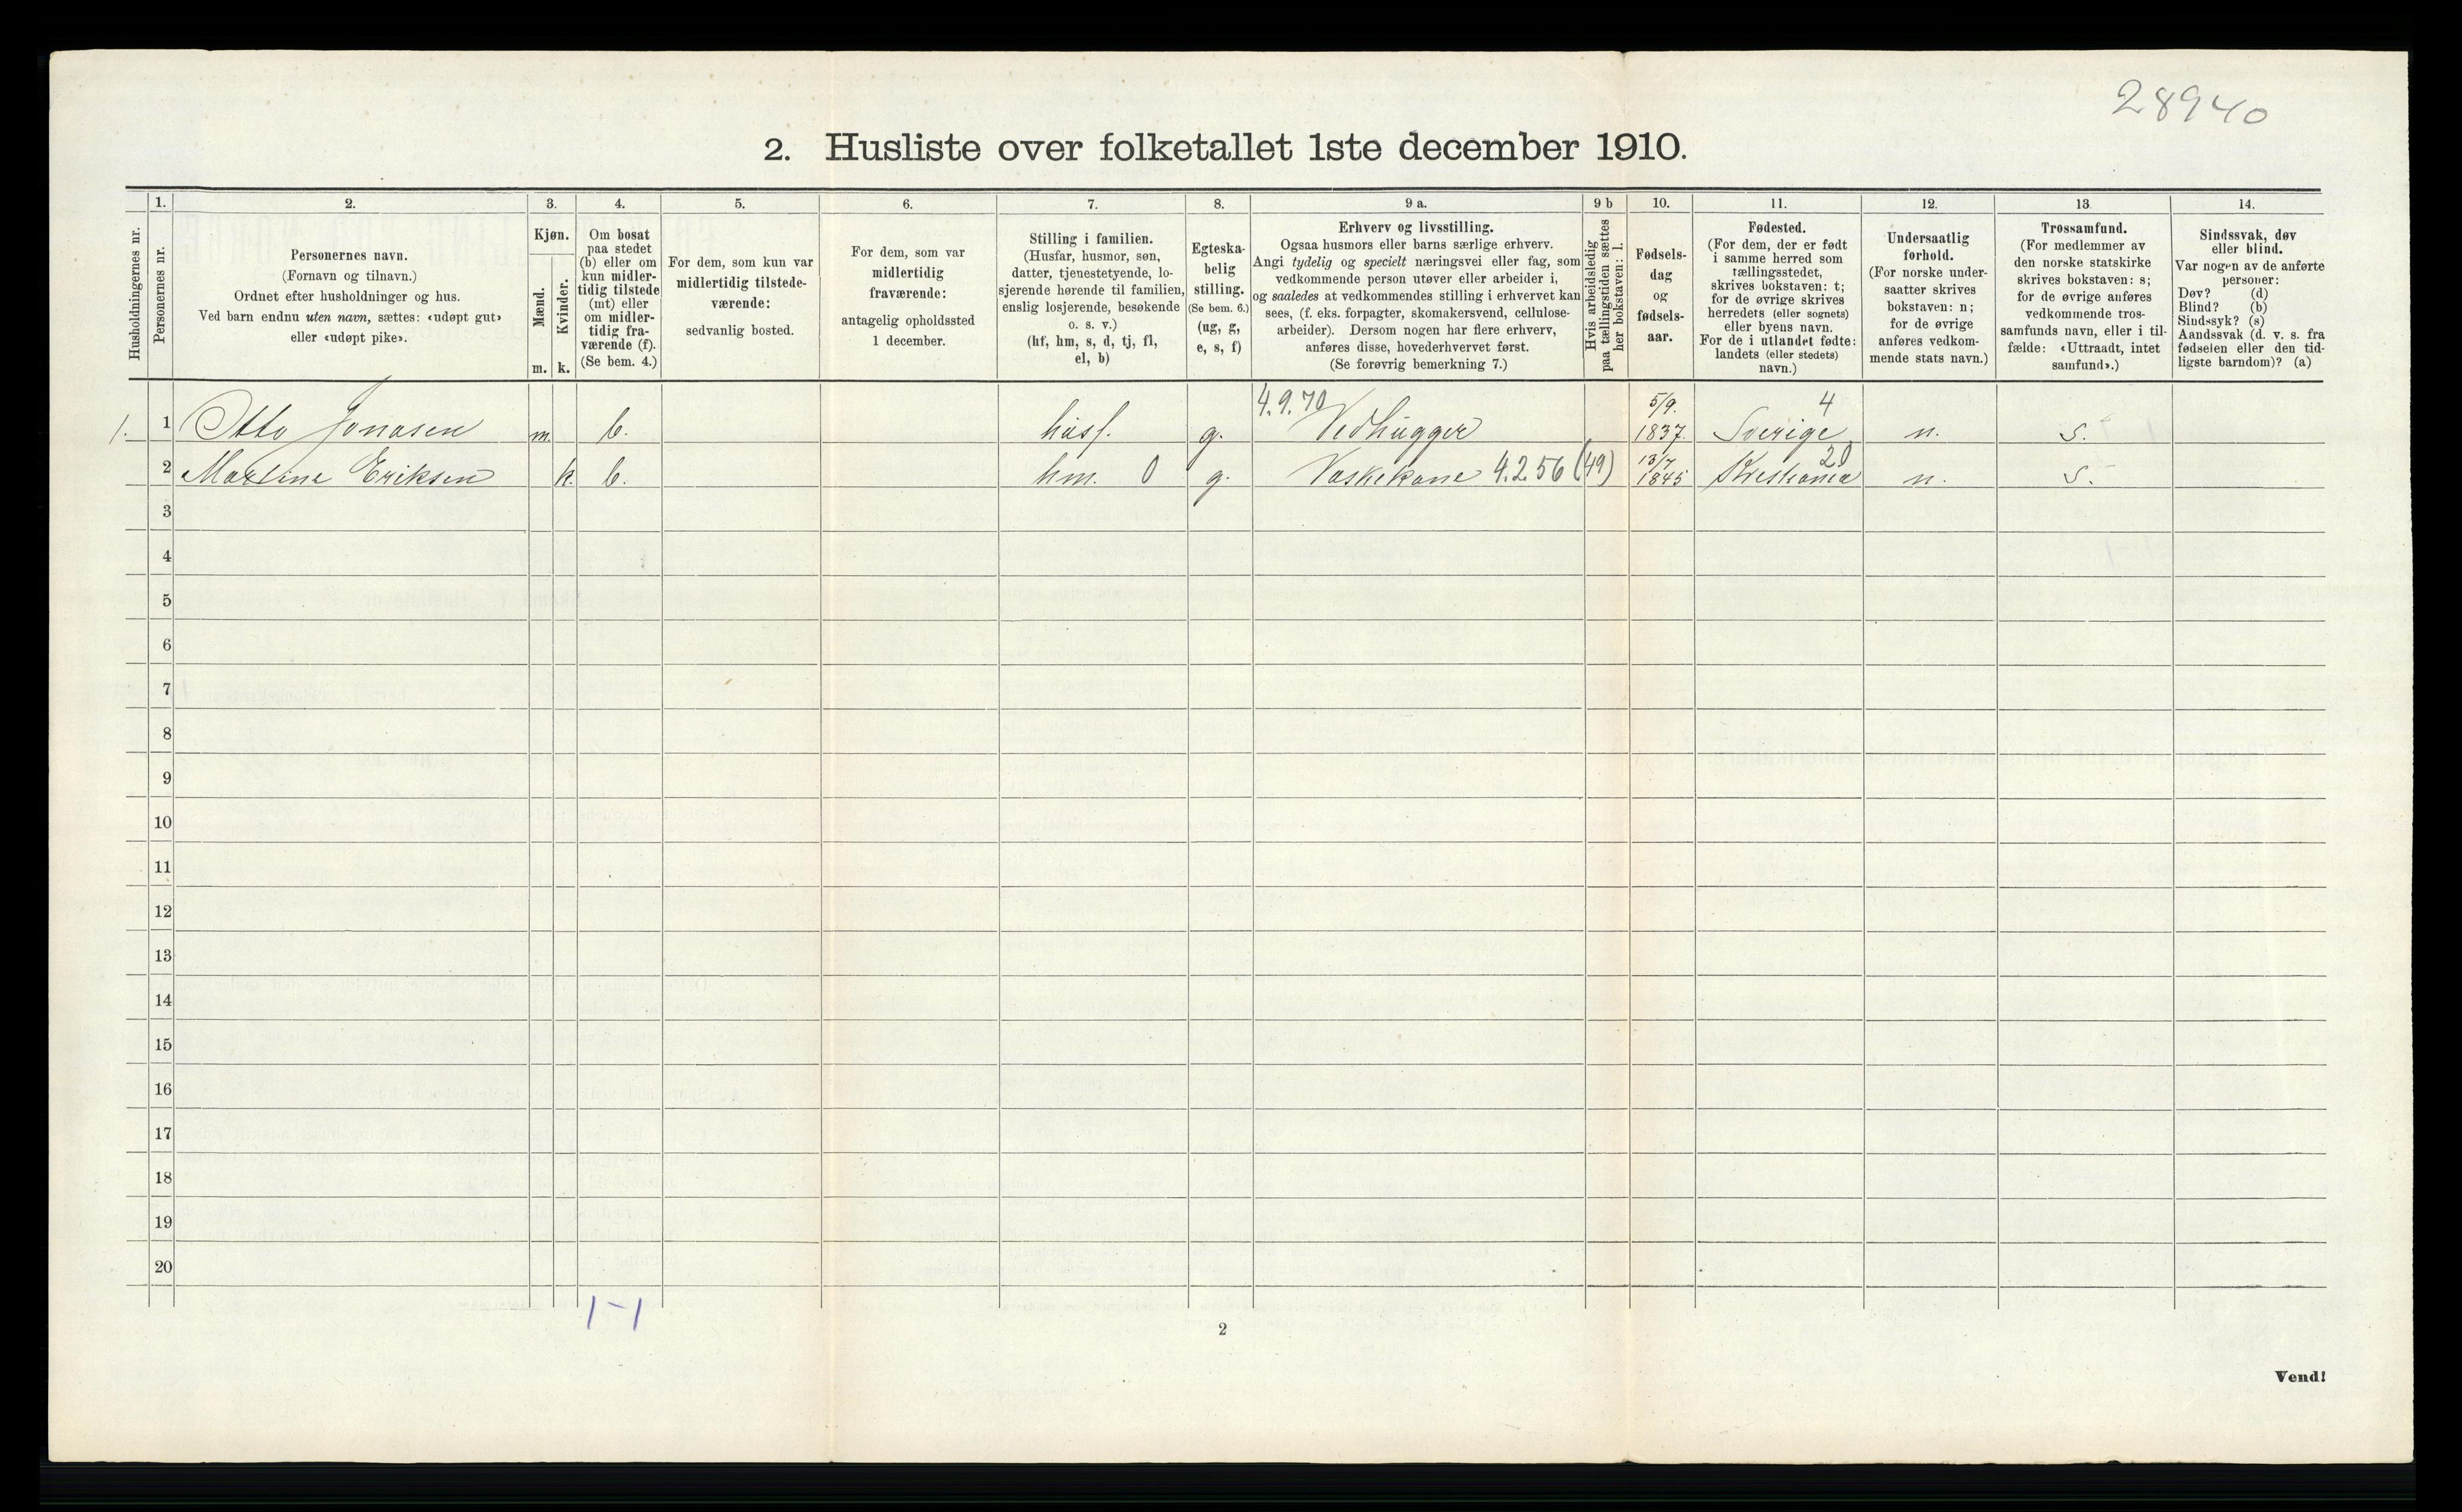 28940
2. Husliste over folketallet 1ste december 1910.
Husholdningernes nr.
1.
Personernes nr.
2.
Personernes navn.
(Fornavn og tilnavn.)
Ordnet efter husholdninger og hus.
Ved barn endnu uten navn, sættes: «udøpt gut»
eller «udøpt pike».
3.
Kjøn.
Mænd.
m.
Kvinder.
k.
4.
Om bosat
paa stedet
(b) eller om
kun midler-
tidig tilstede
(mt) eller
om midler-
tidig fra-
værende (f).
(Se bem. 4.)
5.
For dem, som kun var
midlertidig tilstede-
værende:
sedvanlig bosted.
6.
For dem, som var
midlertidig
fraværende:
antagelig opholdssted
1 december.
7.
Stilling i familien.
(Husfar, husmor, søn,
datter, tjenestetyende, lo-
sjerende hørende til familien,
enslig losjerende, besøkende
o. s. v.)
(hf, hm, s, d, tj, fl,
el, b)
8.
Egteska-
belig
stilling.
(Se bem. 6.)
(ug, g,
e, s, f)
9 a.
Erhverv og livsstilling.
Ogsaa husmors eller barns særlige erhverv.
Angi tydelig og specielt næringsvei eller fag, som
vedkommende person utøver eller arbeider i,
og saaledes at vedkommendes stilling i erhvervet kan
sees, (f. eks. forpagter, skomakersvend, cellulose-
arbeider). Dersom nogen har flere erhverv,
anføres disse, hovederhvervet først.
(Se forøvrig bemerkning 7.)
9 b
Hvis arbeidsledig
paa tællingstiden sættes
her bokstaven: l.
10.
Fødsels-
dag
og
fødsels-
aar.
11.
Fødested.
(For dem, der er født
i samme herred som
tællingsstedet,
skrives bokstaven: t;
for de øvrige skrives
herredets (eller sognets)
eller byens navn.
For de i utlandet fødte:
landets (eller stedets)
navn.)
12.
Undersaatlig
forhold.
(For norske under-
saatter skrives
bokstaven: n;
for de øvrige
anføres vedkom-
mende stats navn.)
13
Trossamfund.
(For medlemmer av
den norske statskirke
skrives bokstaven: s;
for de øvrige anføres
vedkommende tros-
samfunds navn, eller i til-
fælde: «Uttraadt, intet
samfund».)
14.
Sindssvak, døv
eller blind.
Var nogen av de anførte
personer:
Døv? (d)
Blind? (b)
Sindssyk? (s)
Aandssvak (d. v. s. fra
fødselen eller den tid-
ligste barndom)? (a)
1. 1 Otto Jonasen m. b. husf. g. 4.9.70 Vedhugger 5/9. 1837. Sverige 4 n. s.
2 Martine Eriksen k. b. hm. 0 g. Vaskekone 4.2.56 (49) 13/7 1845 Kristiania 20 n. s.
3
4
5
6
7
8
9
10
11
12
13
14
15
16
17
18
19
20
1-1
2
Vend!